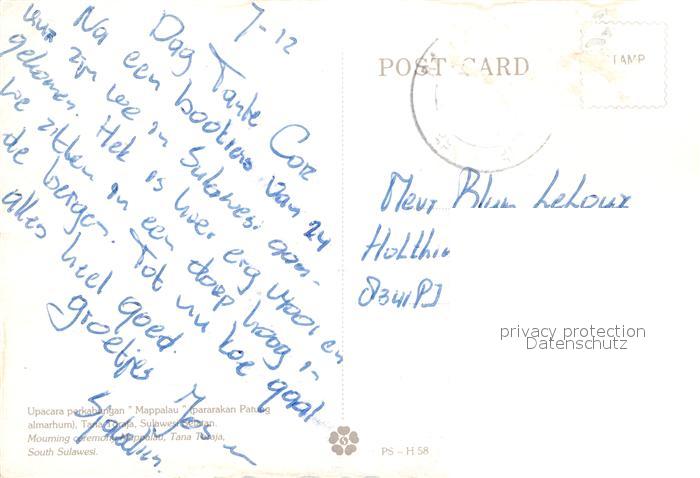 7-12
Dag Tante Cor
Na een bootreis van 24
uur zijn we in Sulawesi aan-
gekomen. Het is hier erg mooi en
we zitten in een dorp hoog in
de bergen. Tot nu toe gaat
alles heel goed.
groetjes
Jos en
POST CARD
STAMP
Mevr Blum LeLoux
8341PJ
privacy protection
Datenschutz
Upacara perkabungan " Mappalau " (pararakan Patung
almarhum), Tana Toraja, Sulawesi Selatan.
Mourning ceremony Mappalau, Tana Toraja,
South Sulawesi.
PS - H 58